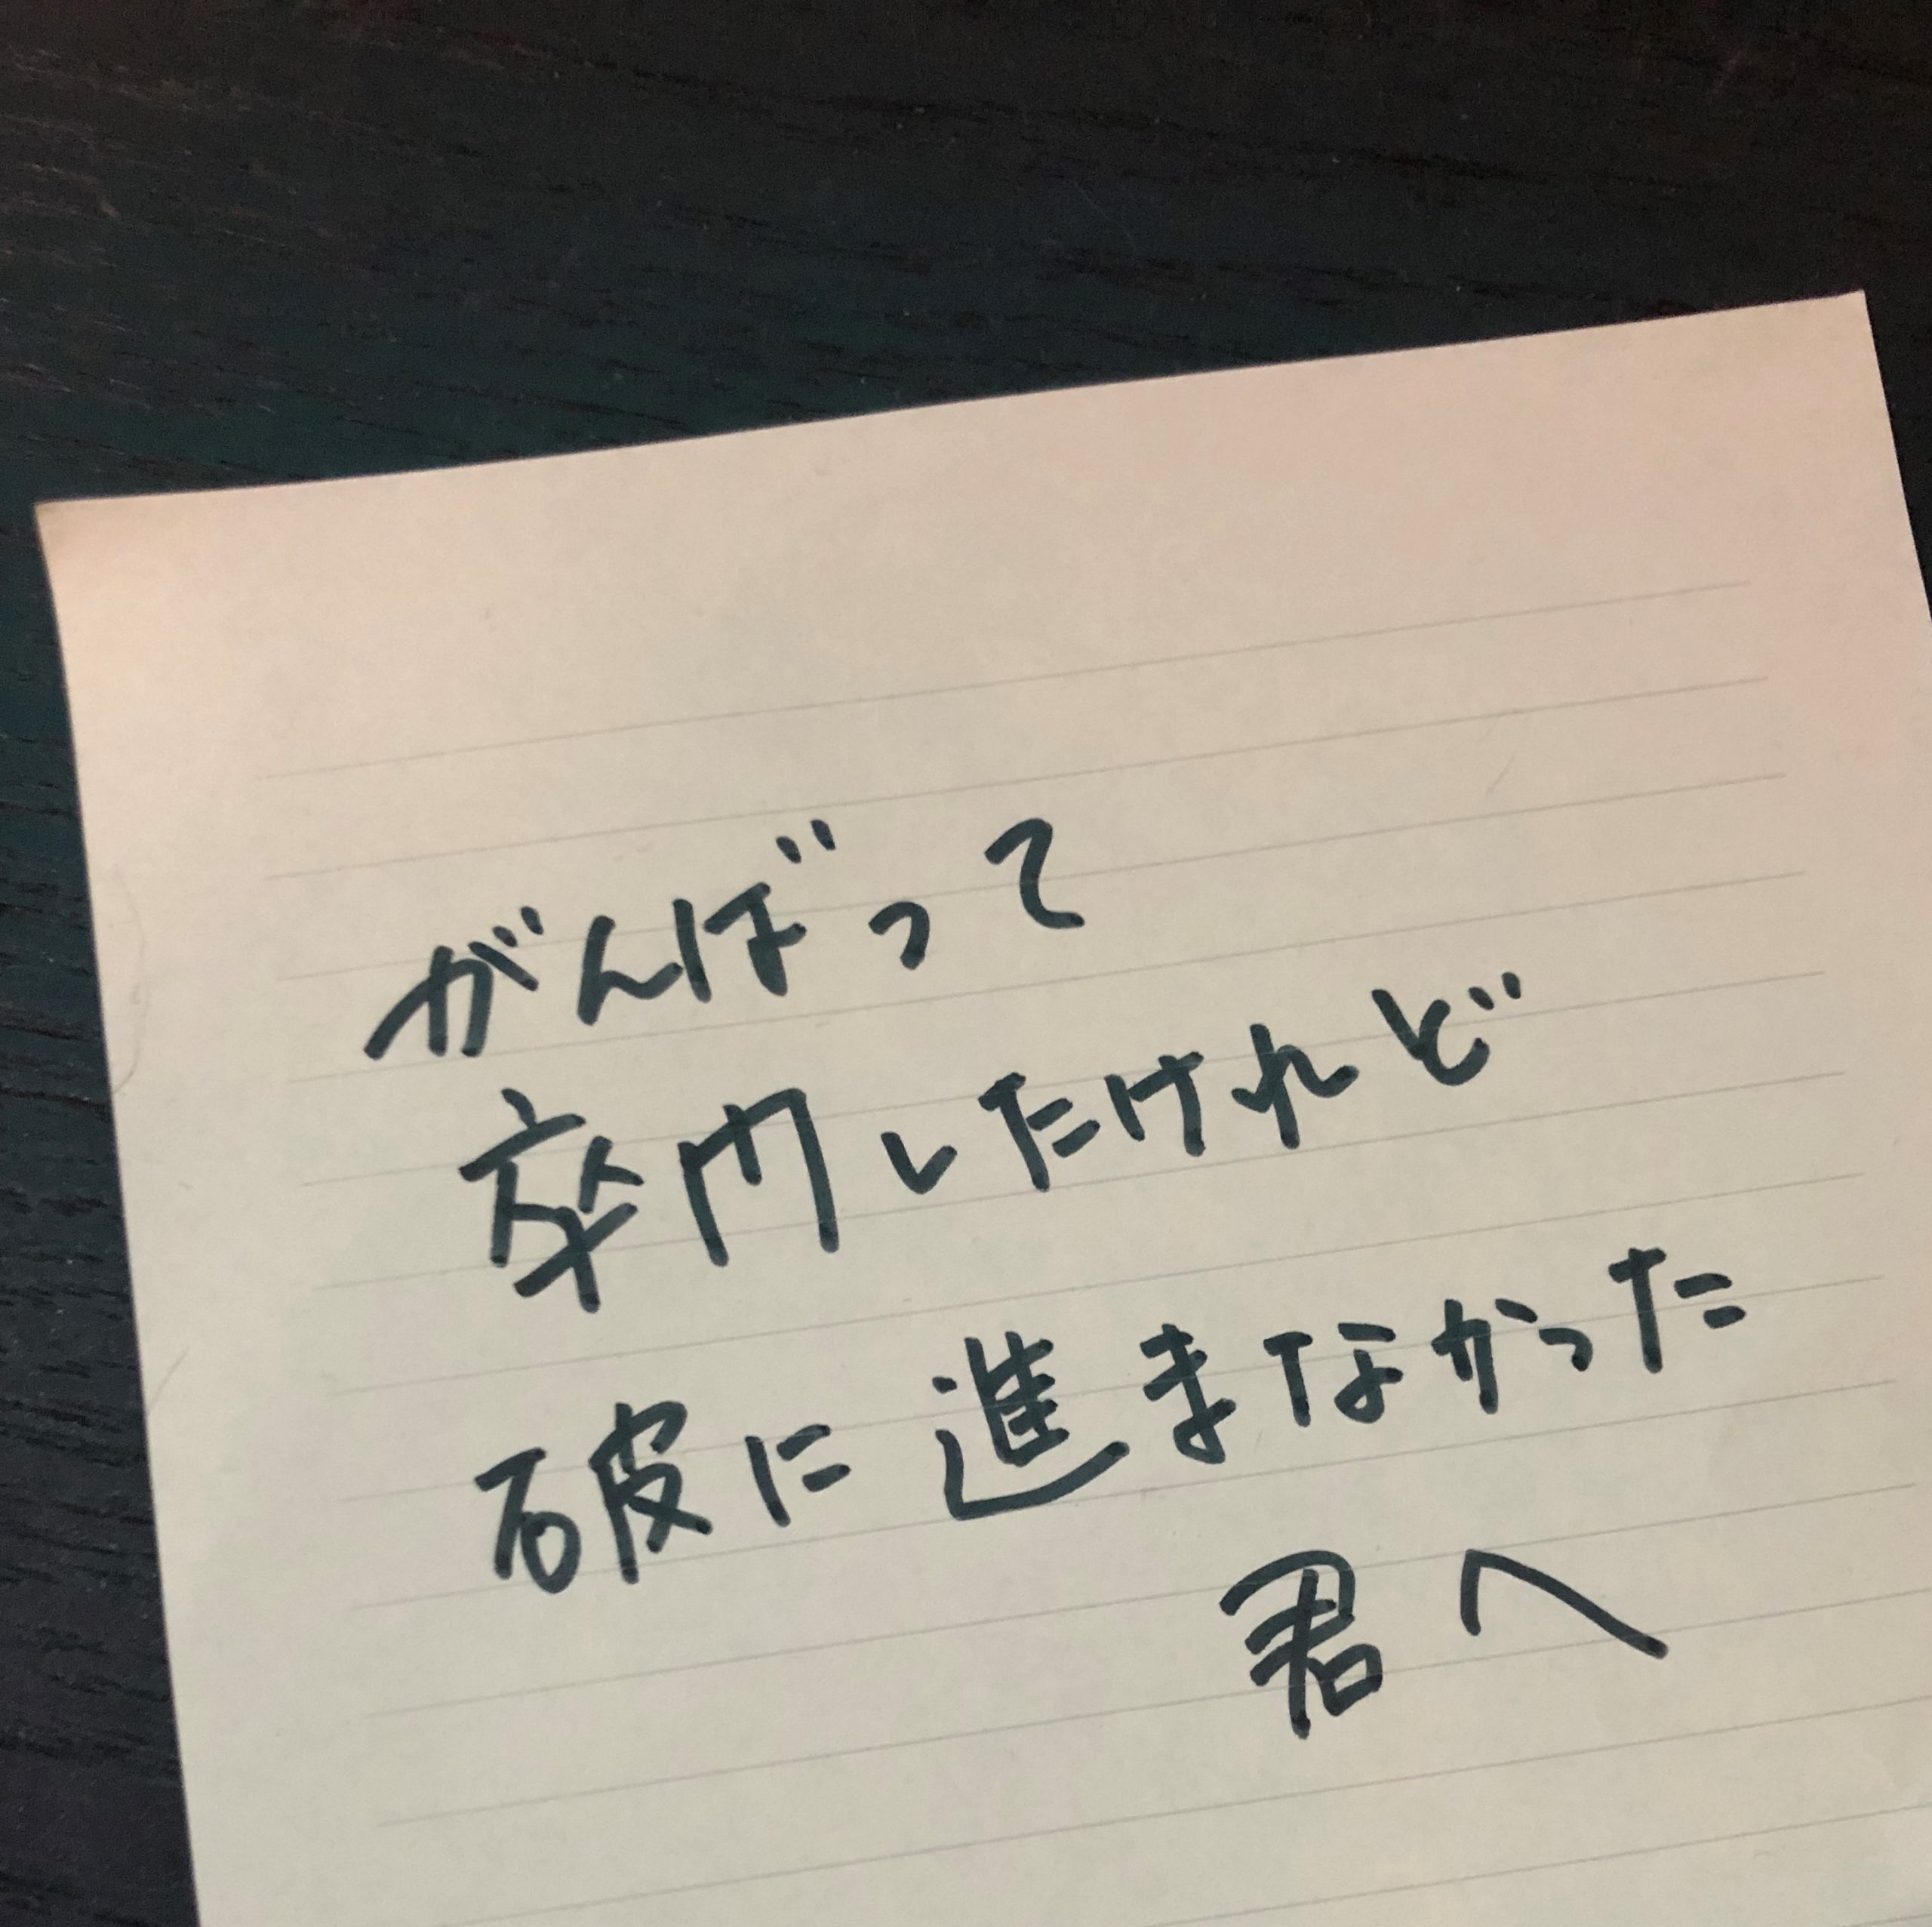 がんばって
卒門したけれど
破に進まなかった
君へ